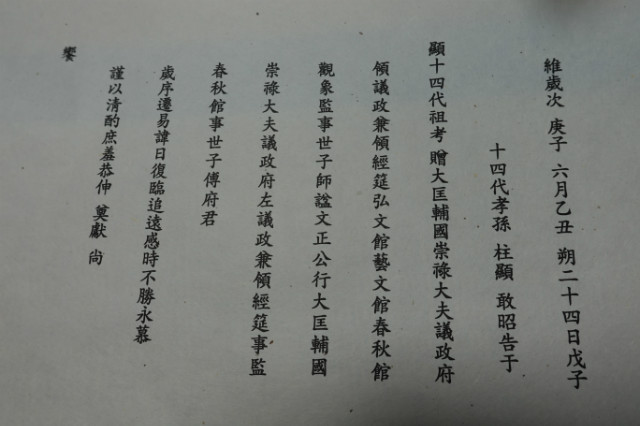 維歲次 庚子 六月乙丑 朔二十四日戊子
十四代孝孫 柱顯 敢昭告于
顯十四代祖考 贈大匡輔國崇祿大夫議政府
領議政兼領經筵弘文館藝文館春秋館
觀象監事世子師諡文正公行大匡輔國
崇祿大夫議政府左議政兼領經筵事監
春秋館事世子傅府君
歲序遷易諱日復臨追遠感時不勝永慕
謹以清酌庶羞恭伸 奠獻 尙
饗